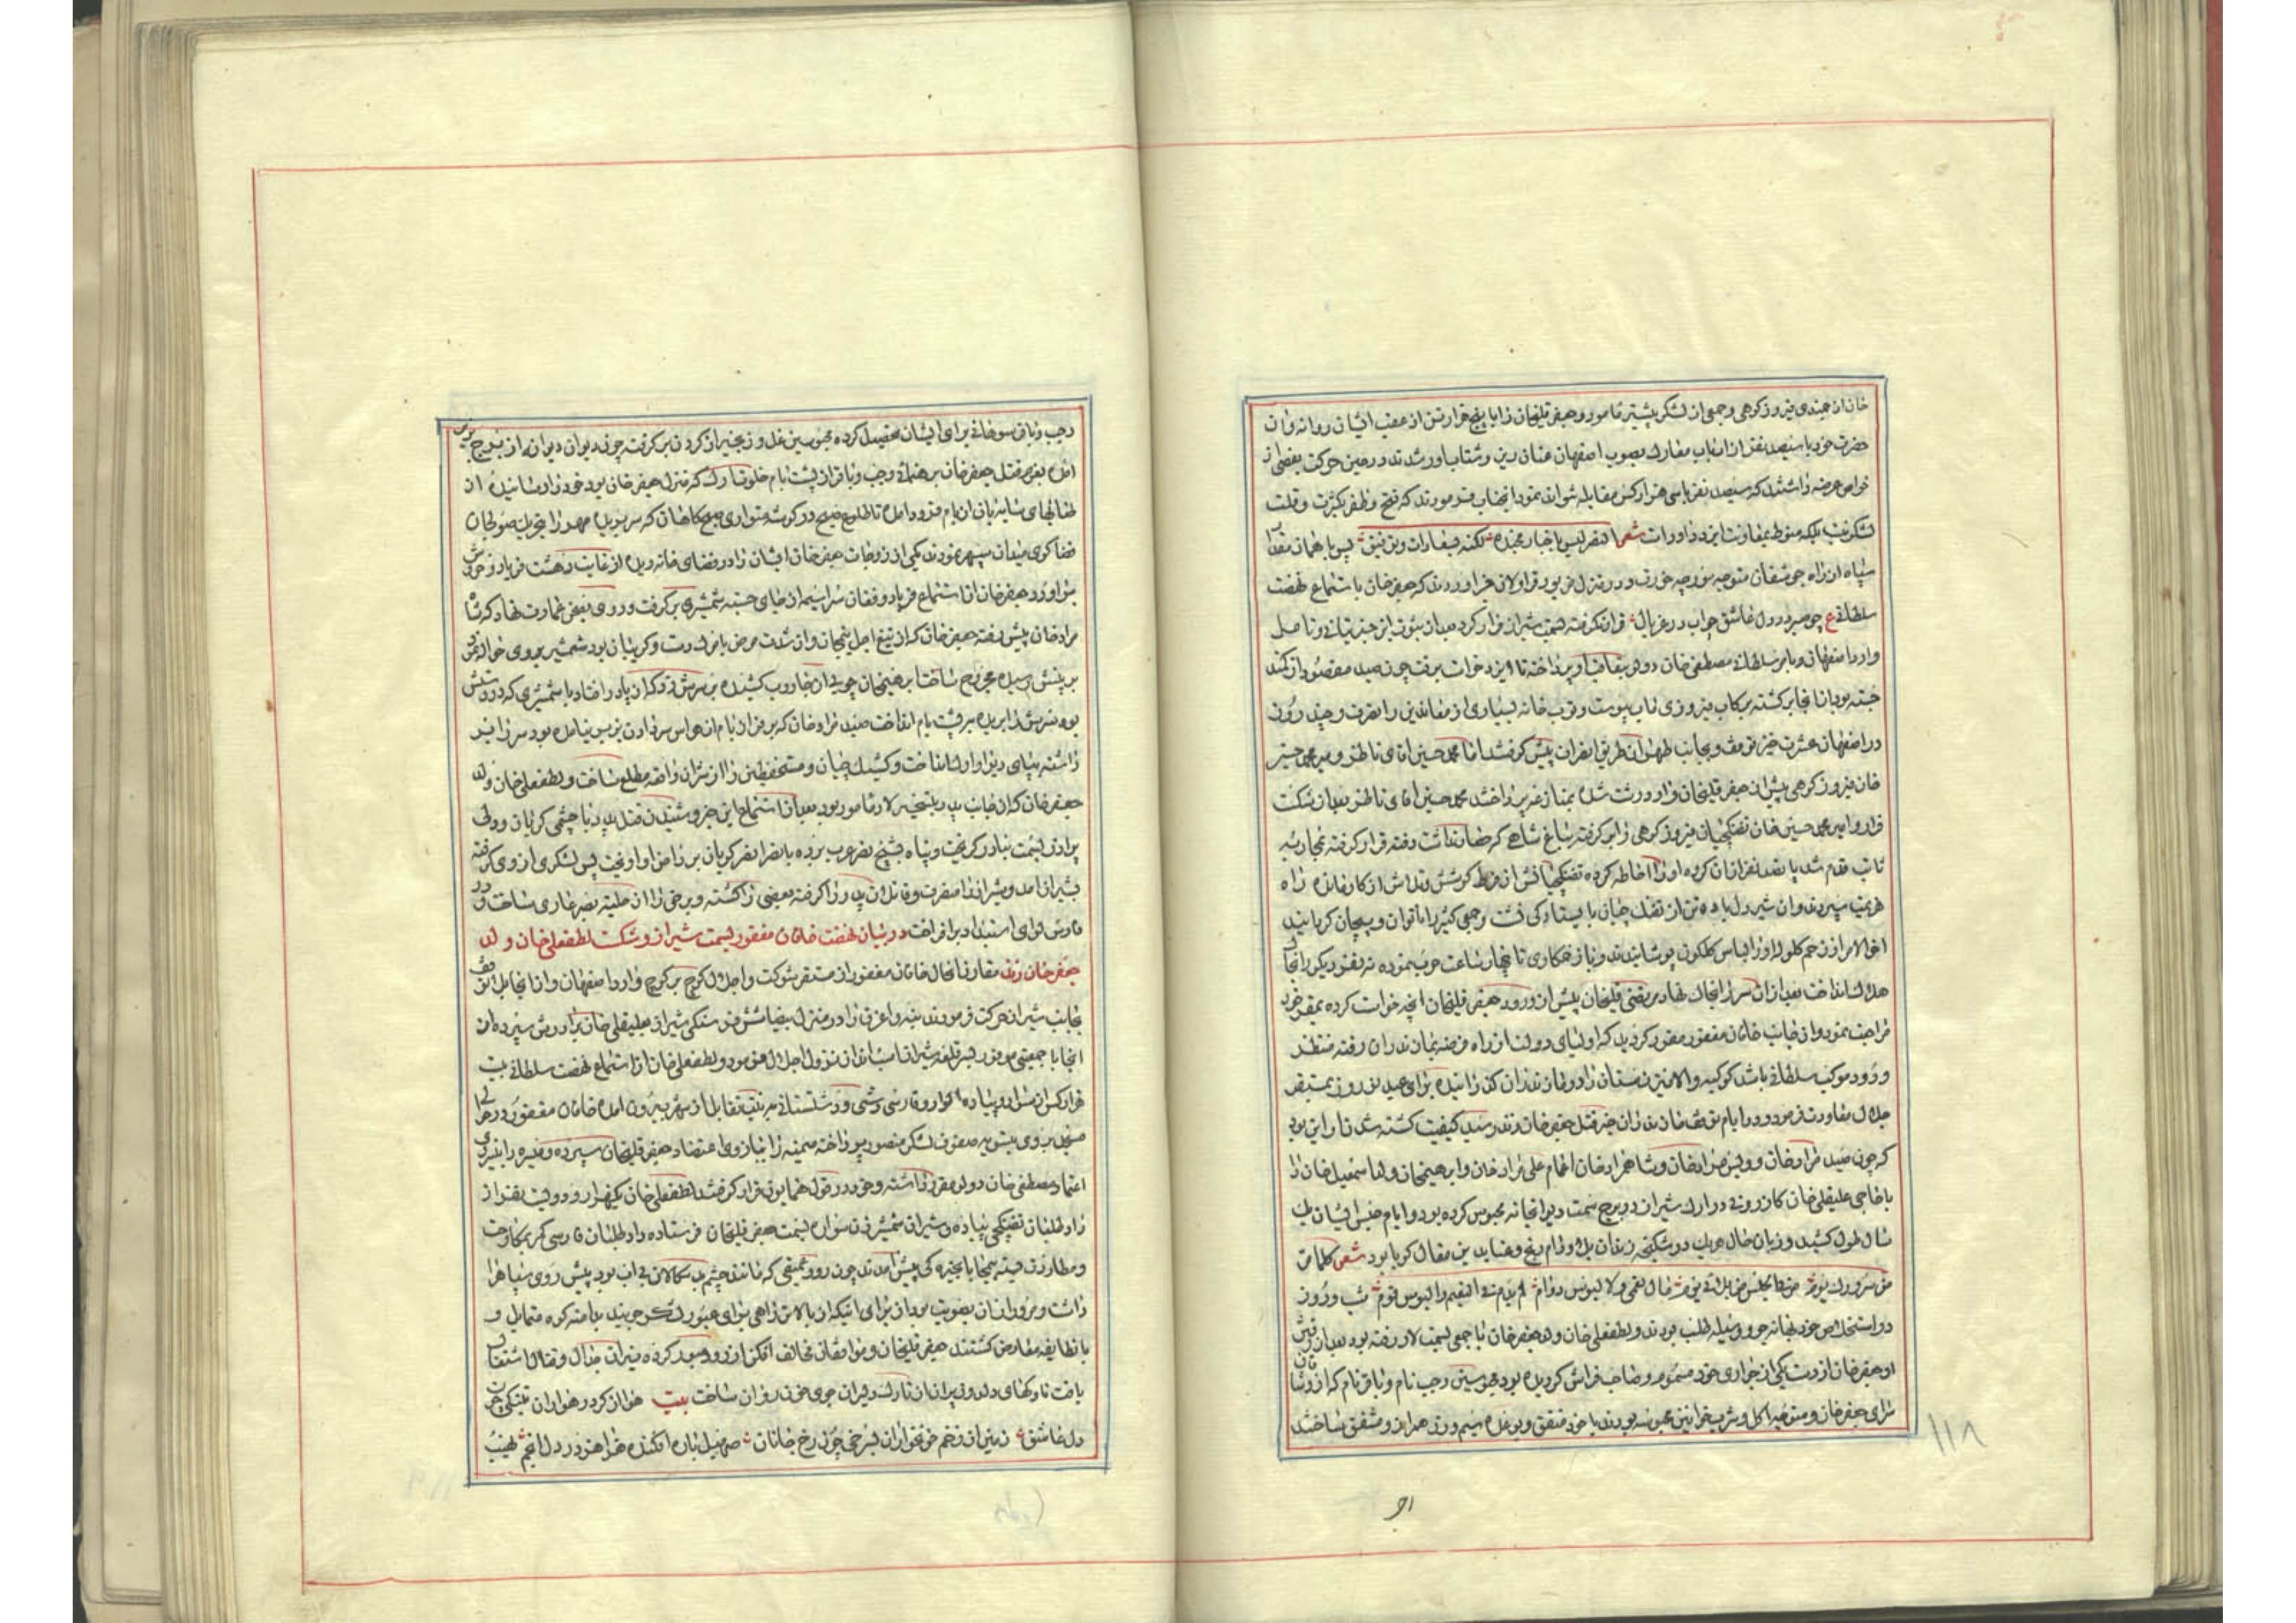 خان ان جندی فیروزکوهی و جمعی از لشکر پیشتر مامور و جعفرقلیخان را با پنج هزار تن از عقب ایشان روانه و ان
حضرت خود با سیصد نفر از ارباب بصوب اصفهان عنان ریز و شتاب اور شدند در حین حرکت بعضی از
خواص عرضه داشتند که سیصد نفر با سی هزار کس مقابله نتواند نمود انجناب فرمودند که فتح و ظفر بکثرت و قلت
لشکر نیست بلکه منوط بمعاونت ایزد داور است شعر النصر لیس باجناد مجنده لکنه بسعادات و توفیق پس با همان مقدار
سپاه از راه جوشقان متوجه مورچه خورت و در منزل مزبور قراولان خبر اوردند که جعفرخان باستماع نهضت
سلطانی ع چو صبر در دل عاشق چو اب در غربال قرار نگرفته بسمت شیراز فرار کرد بعد از ثبوت این خبر بی تانی و تامل
وارد اصفهان و بامر سلطانی مصطفی خان دولو بتعاقب او پرداخته تا ایزدخواست برفت چون صید مقصود از کمند
جسته بود از انجا برگشته برکاب فیروزی ماب پیوست و قرب خانه بسیاری از معاندین را بتصرف و چند روزی
در اصفهان عشرت خیز توقف و بجانب طهران طریق انصراف پیش گرفتند اما محمد حسین اقای ناظر و میر محمد حسین
خان فیروزکوهی پیش از جعفرقلیخان وارد رشت شده بمنازعه پرداختند محمد حسین اقای ناظر بعد از شکست
فرار و امیر محمد حسین خان تفنگچیان فیروزکوهی را برگرفته بباغ شاهی که حصانت داشت رفته قرار گرفته بمحاربه
ثابت قدم شد پانصد نفر از ان کرده او را احاطه کرده تفنگچیانش از فرط کوشش و تلاش از کار مانده راه
هزیمت سپردند و ان شیردل با ده تن از تفنگچیان بایستادگی فشت و جمعی کثیر را ناتوان و پیچان گردانید
اخرالامر از زخم گلوله او را لباس گلگون پوشانیدند و باز همکاری تا چهار ساعت حرب نموده نه نفر دیگر را بخاک
هلاک انداخت بعد از ان سر را بخاک نهاد مرتضی قلیخان پیش از ورود جعفرقلیخان انچه خواست کرده بمقر خود
مراجعت نمود و از جانب خاقان مغفور مقرر گردید که اولیای دولت از راه بمازندران رفته منتظر
ورود موکب سلطانی باشند کوکبه والا نیز زمستان را در مازندران گذرانیده برای عید نوروز بمستقر
جلال معاودت فرمود و در ایام توقف مازندران خبر قتل جعفرخان زند رسید کیفیت کشته شدن او این بود
که چون صید مرادخان و ویس مرادخان و شاهمرادخان اعمام علی مرادخان و ابراهیم خان ولد اسمعیل خان را
با حاجی علیقلی خان کازرونی در ارک شیراز در برج سمت دیوانخانه محبوس کرده بود و ایام حبس ایشان یک
سال طول کشید و زبان حال هر یک در شکنجه زندان بلا و دام رنج و عنا بدین مقال گویا بود شعر کلما مر
من سرورک یوم مر فی الحبس من بلائی یوم مال نعمی و لا لبوس دوام لم یدم فی النعیم و البوس قوم شب و روز
در استخلاص خود بهانه جو و وسیله طلب بودند و لطفعلی خان ولد جعفرخان با جمعی بسمت لار رفته بود بعد از رفتن
او جعفرخان از دست یکی از جواری خود مسموم و صاحب فراش گردیده بود محبوسین رجب نام و باقر نام که از
سرای جعفرخان و متوجه اکل و شرب خوانین محبوسه بودند با خود متفق و بوعده سیم و زر همراز و مشفق ساختند
۱۱۸
رجب و باقر سوهانی برای ایشان تحصیل کرده محبوسین غل و زنجیر از گردن برگرفته چون دیوان دیوانه از برج
امده بعزم قتل جعفرخان برهنمائی رجب و باقر از پشت بام خلوت ارک که منزل جعفرخان بود خود را رسانیده از
طنابهای سایه بان از بام فرود امده تا طلوع صبح در گوشه متواری صبحگاهان که سر بریده مهر را بتحریک صولجان
قضا گوی میدان سپهر نمودند یکی از زوجات جعفرخان ایشان را در فضای خانه دیده از غایت دهشت فریاد و خروش
براورد جعفرخان از استماع فریاد و فغان سراسیمه از جای جسته شمشیری برگرفت و روی بصحن عمارت نهاد که شاه
مرادخان پیش رفته جعفرخان که از تیغ اجل پیچان و از شدت مرض با مرگ دست و گریبان بود شمشیر بروی حواله نمود
بر پشتش رسیده مجروح ساخت ابراهیم خان چوبی از جاروب کشنده بر سرش زد که از پا در افتاد با شمشیری که در دستش
بود سرش را بریده بر پشت بام انداخت صید مرادخان که بر فراز بام از هواس سرداری بی بنیاد امده بود سر را برد
داشته بپای دیوار ارک انداخت و کشیک چیان و مستحفظین را از ان واقعه مطلع ساخت و لطفعلی خان ولد
جعفرخان که از جانب پدر بتسخیر لار مامور بود بعد از استماع این خبر و شنیدن قتل پدر با چشمی گریان و دلی
پر اذر بسمت بنادر گریخت و پناه بشیخ نصر عرب برده یا نصر انصر گویان بر دامن او اویخت پس لشکری از وی گرفته
بشیراز امد و شیراز را متصرف و قاتلان پدر را گرفته بعضی را کشته و برخی را از حلیه بصر عاری ساخت و در
فارس لوای استبداد برافراخت در بیان نهضت خاقان مغفور بسمت شیراز و شکست لطفعلی خان ولد
جعفرخان زند مقارن انحال خاقان مغفور از مستقر شوکت و اجلال کوچ بر کوچ وارد اصفهان و از انجا بلا توقف
بجانب شیراز حرکت فرمودند بنه و اغرق را در منزل بیضا شش فرسنگی شیراز بعلیقلی خان برادرش سپرده از
انجا با جمعیتی موفور بسر قلعه شیراز شتافته نزول اجلال فرمود و لطفعلی خان از استماع نهضت سلطانی بیست
هزار کس از سواره و پیاده و فارسی و دشتی و دشتستانی بترتیب تقابل از شهر بیرون امده خاقان مغفور در حوالی
بترتیب صفوف لشکر منصور پرداخته میمنه را ببازوی اعتضاد جعفرقلیخان سپرده و میسره را بنیروی
اعتماد مصطفی خان دولو مقرر داشته و خود در قول همایون قرار گرفتند لطفعلی خان یکهزار و دویست نفر از
داوطلبان تفنگچی پیاده و شیران شمشیرزن سواره بسمت جعفرقلیخان فرستاده داوطلبان فارسی گرم
پیش امدند چون رود عمیقی که مانند چشم بی اب بود پیش روی سپاه را
داشت برای انکه از بالاتر راهی برای عبور لشکر جویند بدامنه کوه متمایل و
با نطایفه معارض گشتند جعفرقلیخان و موافقان مخالف افکن از رود عبور کرده نیران جدال و قتال اشتعال
یافت ناوکهای دلدوز پران از تارک دلیران جوی خون روان ساخت بیت هوا از گرد رهواران
دل عاشق زمین از زخم خونخواران بسرخی چون رخ جانان صهیل باره افکنده هراهز در دل انجم نهیب